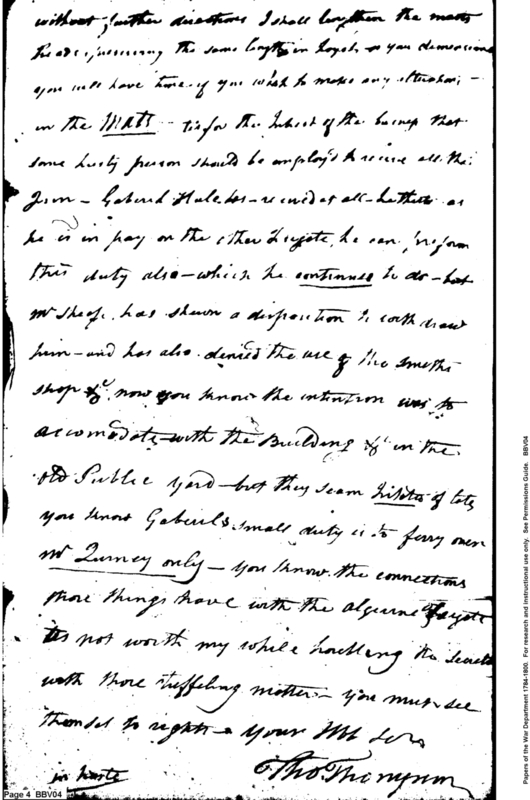 without further directions I shall lengthen the masts
the same length in as you
you will have time if you wish to make any alterations –
in the Mats – tis for the Interest of the business that
some lusty person should be employ'd to receive all the
Iron – Gabriel has received it all – hitherto as
he is in pay on the other Frigate, he can preform
this duty also – which he continues to do – but
Mr Sheafe has shewn a disposition to with draw
him – and has also denied the use of the smiths
shop &c now you know the intention was to
accomodate with the Building &c in the
old Public yard – but they seam of late
you know Gabriels small duty is to ferry over
Mr Turney only – you know the connections
those things have with the algerine Frigate
tis not worth my while the Secrets
with those matters – you must see
them set to rights – your Hbl Ser
in haste
Tho Thompson
Page 4 BBV04
Papers of the War Department 1784-1800. For research and instructional use only. See Permissions Guide. BBV04